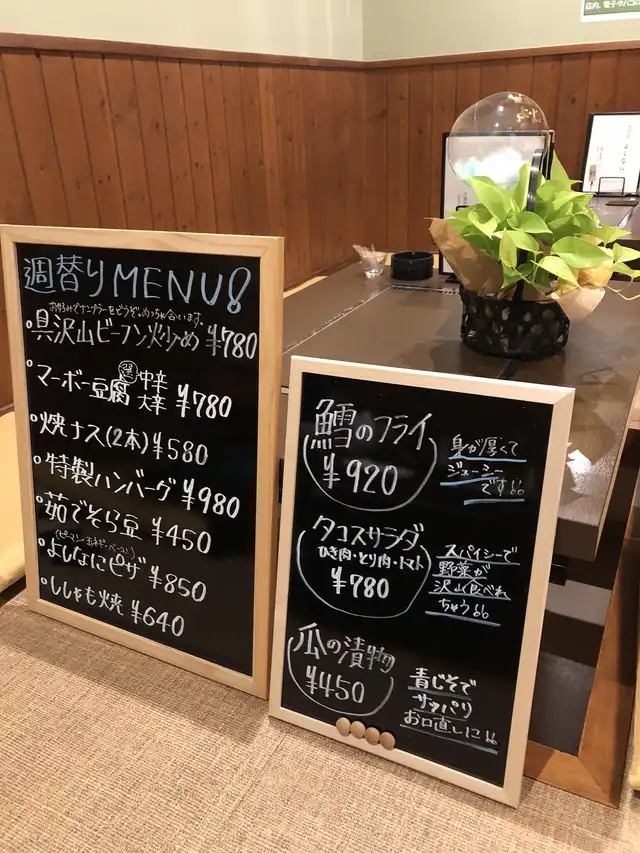 店内、電子タバコ
週替りMENU!
・具沢山ビーフン炒め ¥780
・マーボー豆腐 選 中辛 大辛 ¥780
・焼ナス(2本) ¥580
・特製ハンバーグ ¥980
・茹でそら豆 ¥450
(ピーマン・玉ネギ・ベーコン)
・よしなにピザ ¥850
・ししゃも焼 ¥640
鱈のフライ
¥920
身が厚くて
ジューシー
です!!
タコスサラダ
ひき肉・とり肉・トマト
¥780
スパイシーで
野菜が
沢山食べれ
ちゃう!!
瓜の漬物
¥450
青じそで
サッパリ
お口直しに!!